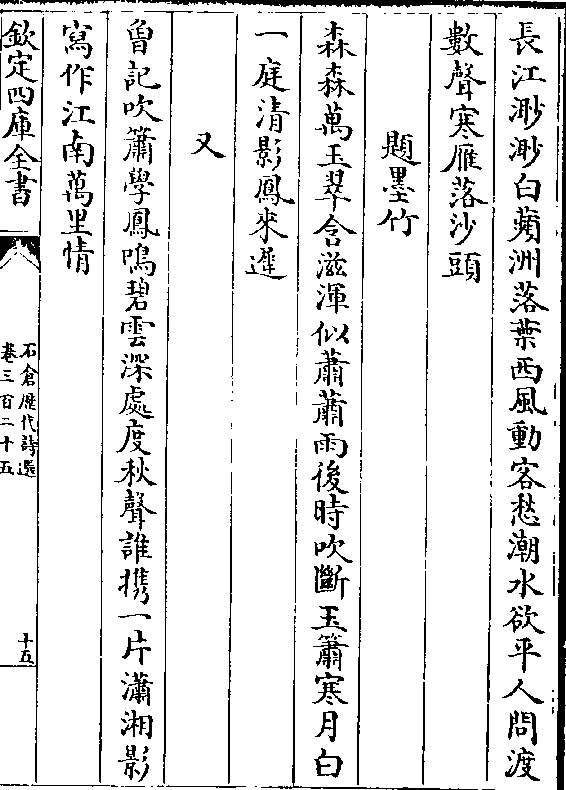 長江渺渺白蘋洲落葉西風動客愁潮水欲平人問渡
數聲寒雁落沙頭
題墨竹
森森萬玉翠含滋渾似蕭蕭雨後時吹斷玉簫寒月白
一庭清影鳳來遲
又
曾記吹簫學鳳鳴碧雲深處度秋聲誰携一片瀟湘影
寫作江南萬里情
欽定四庫全書
石倉歷代詩選
卷三百二十五
十五